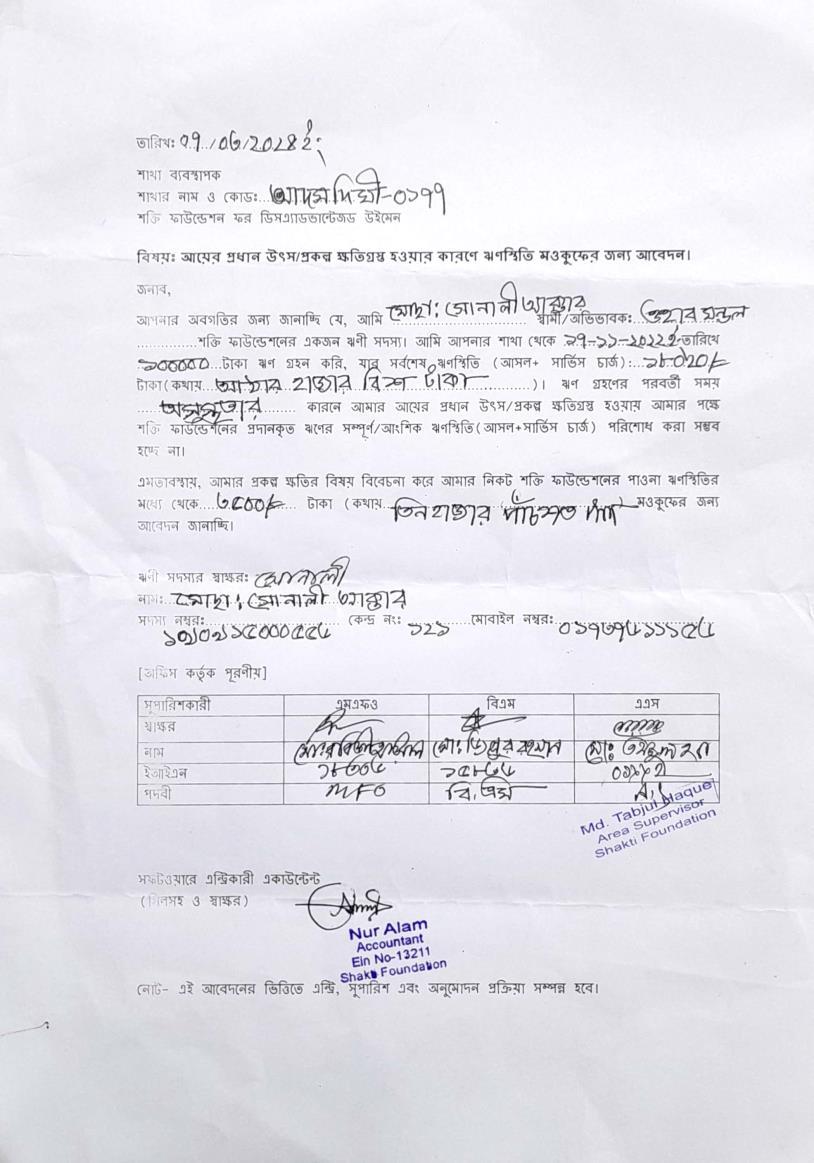 তারিখ: ০৭/০৫/২০২৪ ইং
শাখা ব্যবস্থাপক
শাখার নাম ও কোড:...আদমদিঘী-০১৭৭
শক্তি ফাউন্ডেশন ফর ডিসএ্যাডভান্টেজড উইমেন
বিষয়: আয়ের প্রধান উৎস/প্রকল্প ক্ষতিগ্রস্ত হওয়ার কারণে ঋণস্থিতি মওকুফের জন্য আবেদন।
জনাব,
আপনার অবগতির জন্য জানাচ্ছি যে, আমি মোছা: সোনালী আক্তার স্বামী/অভিভাবক: মন্ডল
শক্তি ফাউন্ডেশনের একজন ঋণী সদস্য। আমি আপনার শাখা থেকে ২৭-১১-২০২২ইং তারিখে
১০০০০০ টাকা ঋণ গ্রহন করি, যার সর্বশেষ ঋণস্থিতি (আসল+ সার্ভিস চার্জ):১৮০২০/=
টাকা(কথায়...আঠার হাজার বিশ টাকা...)। ঋণ গ্রহণের পরবর্তী সময়
অসুস্থতার কারনে আমার আয়ের প্রধান উৎস/প্রকল্প ক্ষতিগ্রস্ত হওয়ায় আমার পক্ষে
শক্তি ফাউন্ডেশনের প্রদানকৃত ঋণের সম্পূর্ণ/আংশিক ঋণস্থিতি(আসল+সার্ভিস চার্জ) পরিশোধ করা সম্ভব
হচ্ছে না।
এমতাবস্থায়, আমার প্রকল্প ক্ষতির বিষয় বিবেচনা করে আমার নিকট শক্তি ফাউন্ডেশনের পাওনা ঋণস্থিতির
মধ্যে থেকে....৩৫০০/=.... টাকা (কথায় তিন হাজার পাঁচশত মওকুফের জন্য
আবেদন জানাচ্ছি।
ঋণী সদস্যর স্বাক্ষর: সোনালী
নাম: মোছা: সোনালী আক্তার
সদস্য নম্বর: কেন্দ্র নং: ১২১ মোবাইল নম্বর:
[অফিস কর্তৃক পূরণীয়]
সুপারিশকারী এমএফও বিএম এএস
স্বাক্ষর
নাম মো: রহমান মো:
ইআইএন
পদবী MFO বি,এম A,S
Md. Tabjul Haque
Area Supervisor
Shakti Foundation
সফটওয়ারে এন্ট্রিকারী একাউন্টেন্ট
(সিলসহ ও স্বাক্ষর)
Nur Alam
Accountant
Ein No-13211
Shakti Foundation
নোট- এই আবেদনের ভিত্তিতে এন্ট্রি, সুপারিশ এবং অনুমোদন প্রক্রিয়া সম্পন্ন হবে।